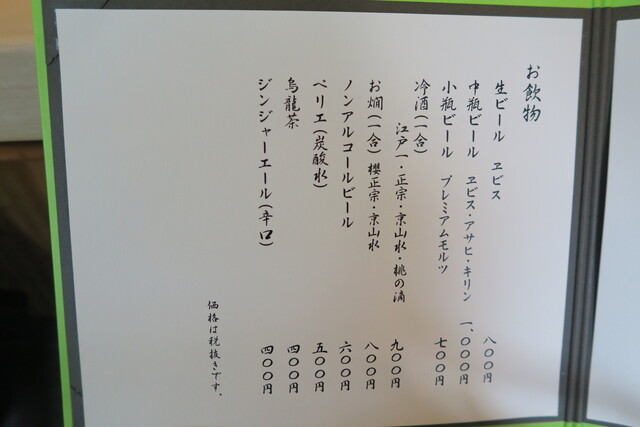 お飲物
生ビール ヱビス 八〇〇円
中瓶ビール ヱビス・アサヒ・キリン 一、〇〇〇円
小瓶ビール プレミアムモルツ 七〇〇円
冷酒(一合)
江戸一・正宗・京山水・桃の滴 九〇〇円
お燗(一合) 櫻正宗・京山水 八〇〇円
ノンアルコールビール 六〇〇円
ペリエ(炭酸水) 五〇〇円
烏龍茶 四〇〇円
ジンジャーエール(辛口) 四〇〇円
価格は税抜きです。